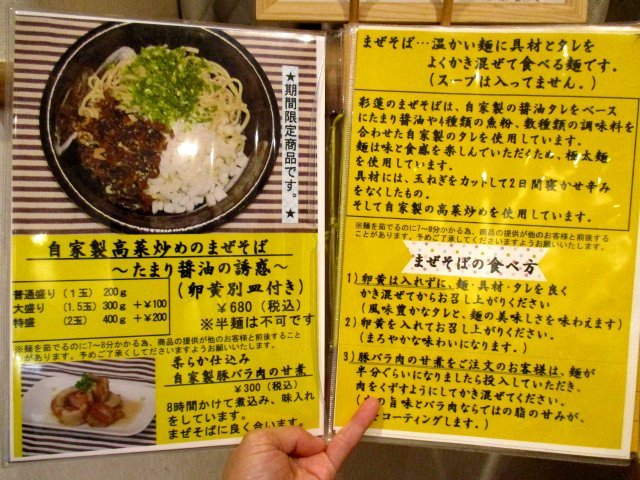 ★期間限定商品です。★
自家製高菜炒めのまぜそば
～たまり醤油の誘惑～
普通盛り(1玉) 200g
大盛り (1.5玉) 300g +￥100
特盛 (2玉) 400g +￥200
(卵黄別皿付き)
￥680(税込)
※半麺は不可です
※麺を茹でるのに7～8分かかる為、商品の提供が他のお客様と前後すること
があります。予めご了承くださいますようお願いいたします。
柔らか仕込み
自家製豚バラ肉の甘煮
￥300(税込)
8時間かけて煮込み、味入れ
をしています。
まぜそばに良く会います。
まぜそば…温かい麺に具材とタレを
よくかき混ぜて食べる麺です。
(スープは入ってません。)
彩蓮のまぜそばは、自家製の醤油タレをベース
にたまり醤油や4種類の魚粉、数種類の調味料を
合わせた自家製のタレを使用しています。
麺は味と食感を楽しんでいただくため、極太麺
を使用しています。
具材には、玉ねぎをカットして2日間寝かせ辛み
をなくしたもの。
そして自家製の高菜炒めを使用しています。
※麺を茹でるのに7～8分かかる為、商品の提供が他のお客様と前後する
ことがあります。予めご了承くださいますようお願いいたします。
まぜそばの食べ方
1)卵黄は入れずに、麺・具材・タレを良く
かき混ぜてからお召し上がりください
(風味豊かなタレと、麺の美味しさを味わえます)
2)卵黄を入れてお召し上がりください。
(まろやかな味わいになります。)
3)豚バラ肉の甘煮をご注文のお客様は、麺が
半分ぐらいになりましたら投入していただき、
肉をくずすようにしてかき混ぜてください。
の旨味とバラ肉ならではの脂の甘みが、
コーティングします。)